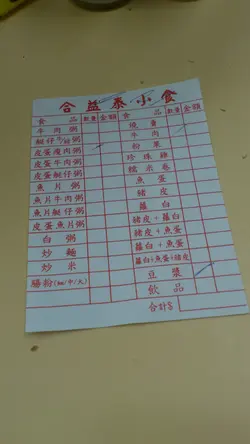 合益泰小食
食品 數量 金額 食品 數量 金額
牛肉粥 燒賣
艇仔粥 牛肉
皮蛋瘦肉粥 粉果
皮蛋牛肉粥 珍珠雞
皮蛋艇仔粥 糯米卷
魚片粥 魚蛋
魚片牛肉粥 豬皮
魚片艇仔粥 蘿白
皮蛋魚片粥 豬皮+蘿白
白粥 豬皮+魚蛋
炒麵 蘿白+魚蛋
炒米 蘿白+魚蛋+豬皮
腸粉 豆漿
飲品
合計$